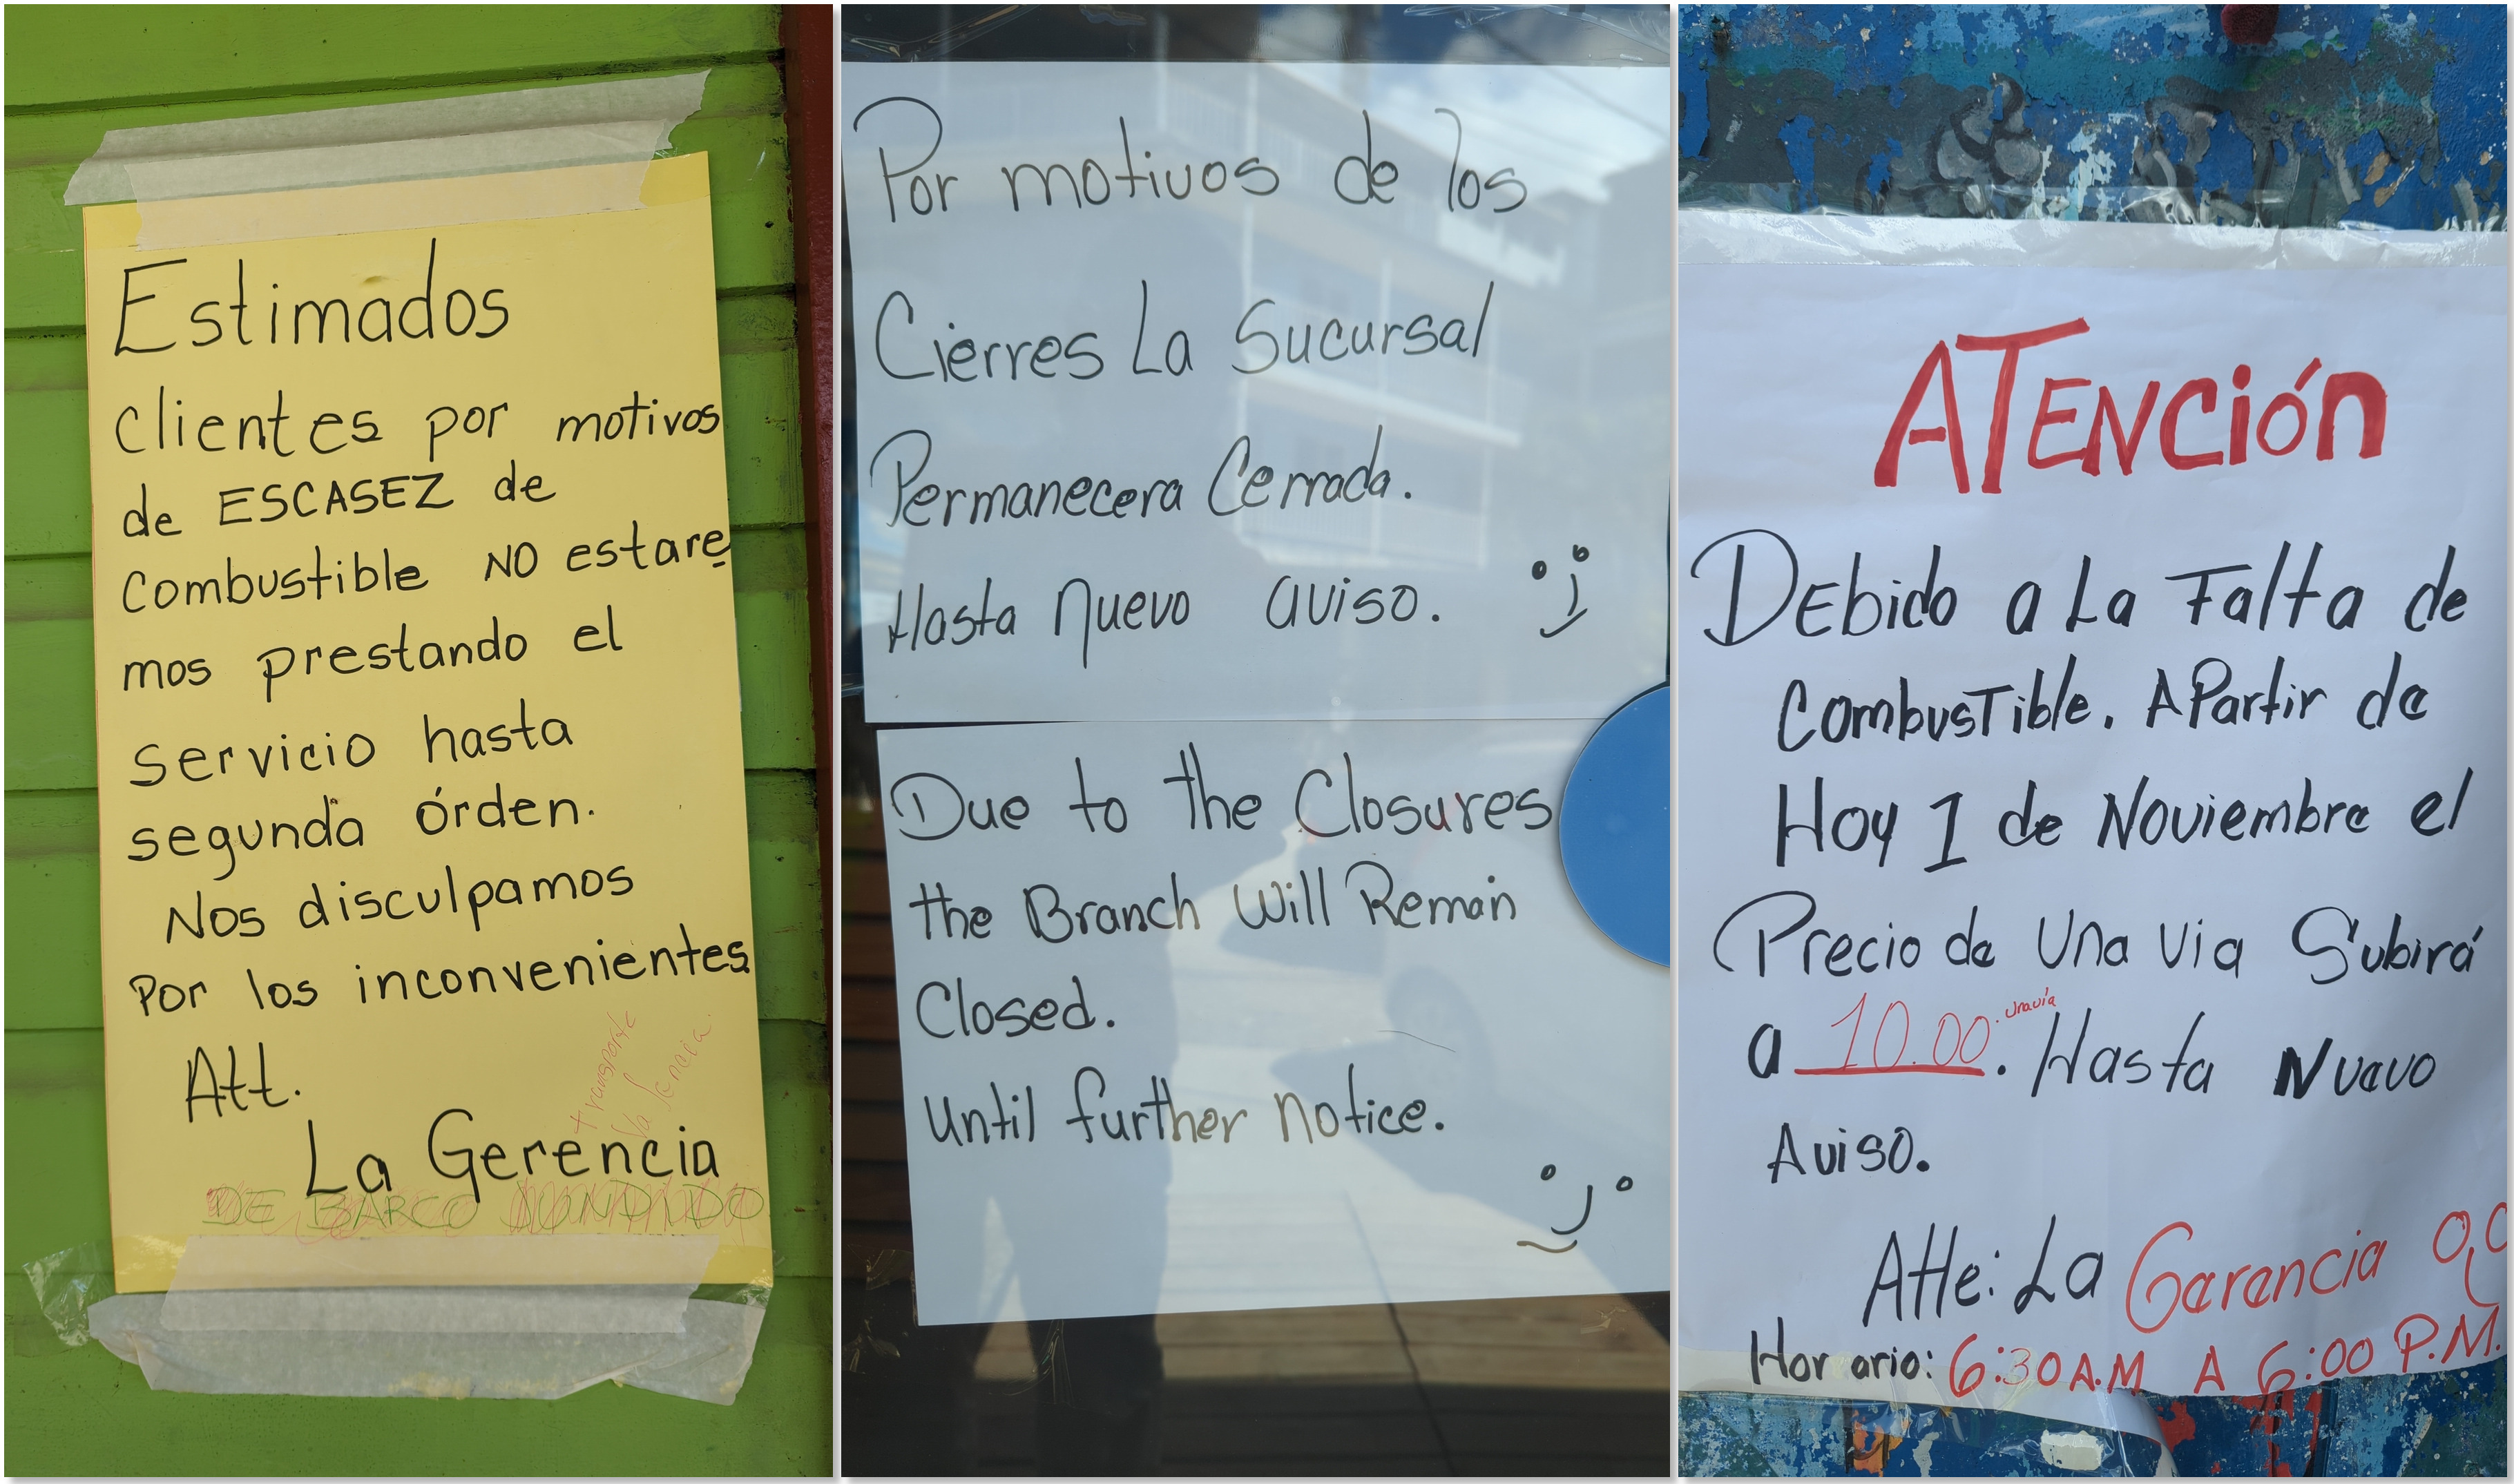 Estimados
clientes por motivos
de ESCASEZ de
combustible NO estare
mos prestando el
servicio hasta
segunda órden.
Nos disculpamos
Por los inconvenientes
Att.
transporte
Valencia.
La Gerencia
DE BARCO
Por motivos de los
Cierres La Sucursal
Permanecera Cerrada.
Hasta nuevo aviso.
Due to the Closures
the Branch Will Remain
Closed.
Until further notice.
ATENCIÓN
DEbido a La Falta de
CombusTible. A Partir de
Hoy 1 de Noviembre el
Precio de Una Via Subirá
a 10.00. Una vía . Hasta Nuevo
Aviso.
Atte: La Gerencia
Horario: 6:30 A.M A 6:00 P.M.